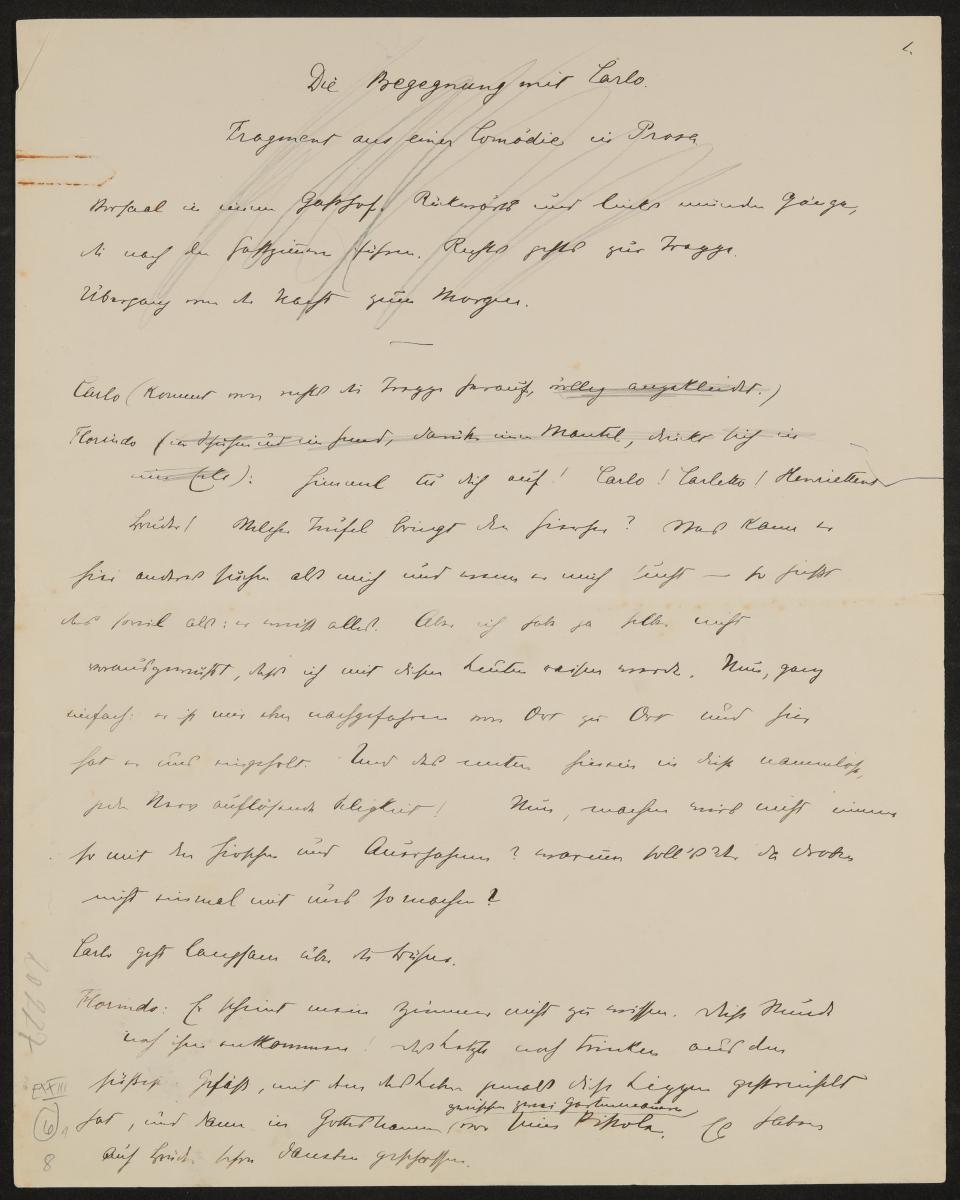 1.
Die Begegnung mit Carlo.
Fragment aus einer Comödie in Prosa
Vorsaal in einem Gasthof. Rückwärts und links münden Gänge,
die nach den Gastzimmern führen. Rechts gehts zur Treppe.
Übergang von der Nacht zum Morgen.
Carlo (kommt von rechts die Treppe herauf, völlig angekleidet.)
Florindo (in Schuhen und im Hemd, darüber einen Mantel, drückt sich in
eine Ecke): Himmel tu dich auf! Carlo! Carletto! Henriettens
Bruder! Welcher Teufel bringt den hierher? Was kann er
hier anderes suchen als mich und wenn er mich sucht — so heißt
das soviel als: er weiß alles. Aber ich hab ja selber nicht
vorausgewußt, daß ich mit diesen Leuten reisen werde. Nun, ganz
einfach: er ist mir eben nachgefahren von Ort zu Ort und hier
hat er uns eingeholt. Und das mitten hinein in diese namenlose,
jeden Nerv auflösende Seligkeit! Nun, machen wirs nicht immer
so mit den Hirschen und Auerhahnen? warum soll's Der da droben
nicht einmal mit uns so machen?
Carlo geht langsam über die Bühne.
Florindo: Er scheint mein Zimmer nicht zu wissen. Diese Stunde
noch ihm entkommen! das Letzte noch trinken aus dem
süßesten Gefäß, mit dem das Leben jemals diese Lippen gestreichelt
zwischen zwei Gartenmauern
hat, und dann in Gottesnamen vor seine Pistole. Es haben
auch Brüder schon daneben geschossen.
20277
PXXIII
6
8